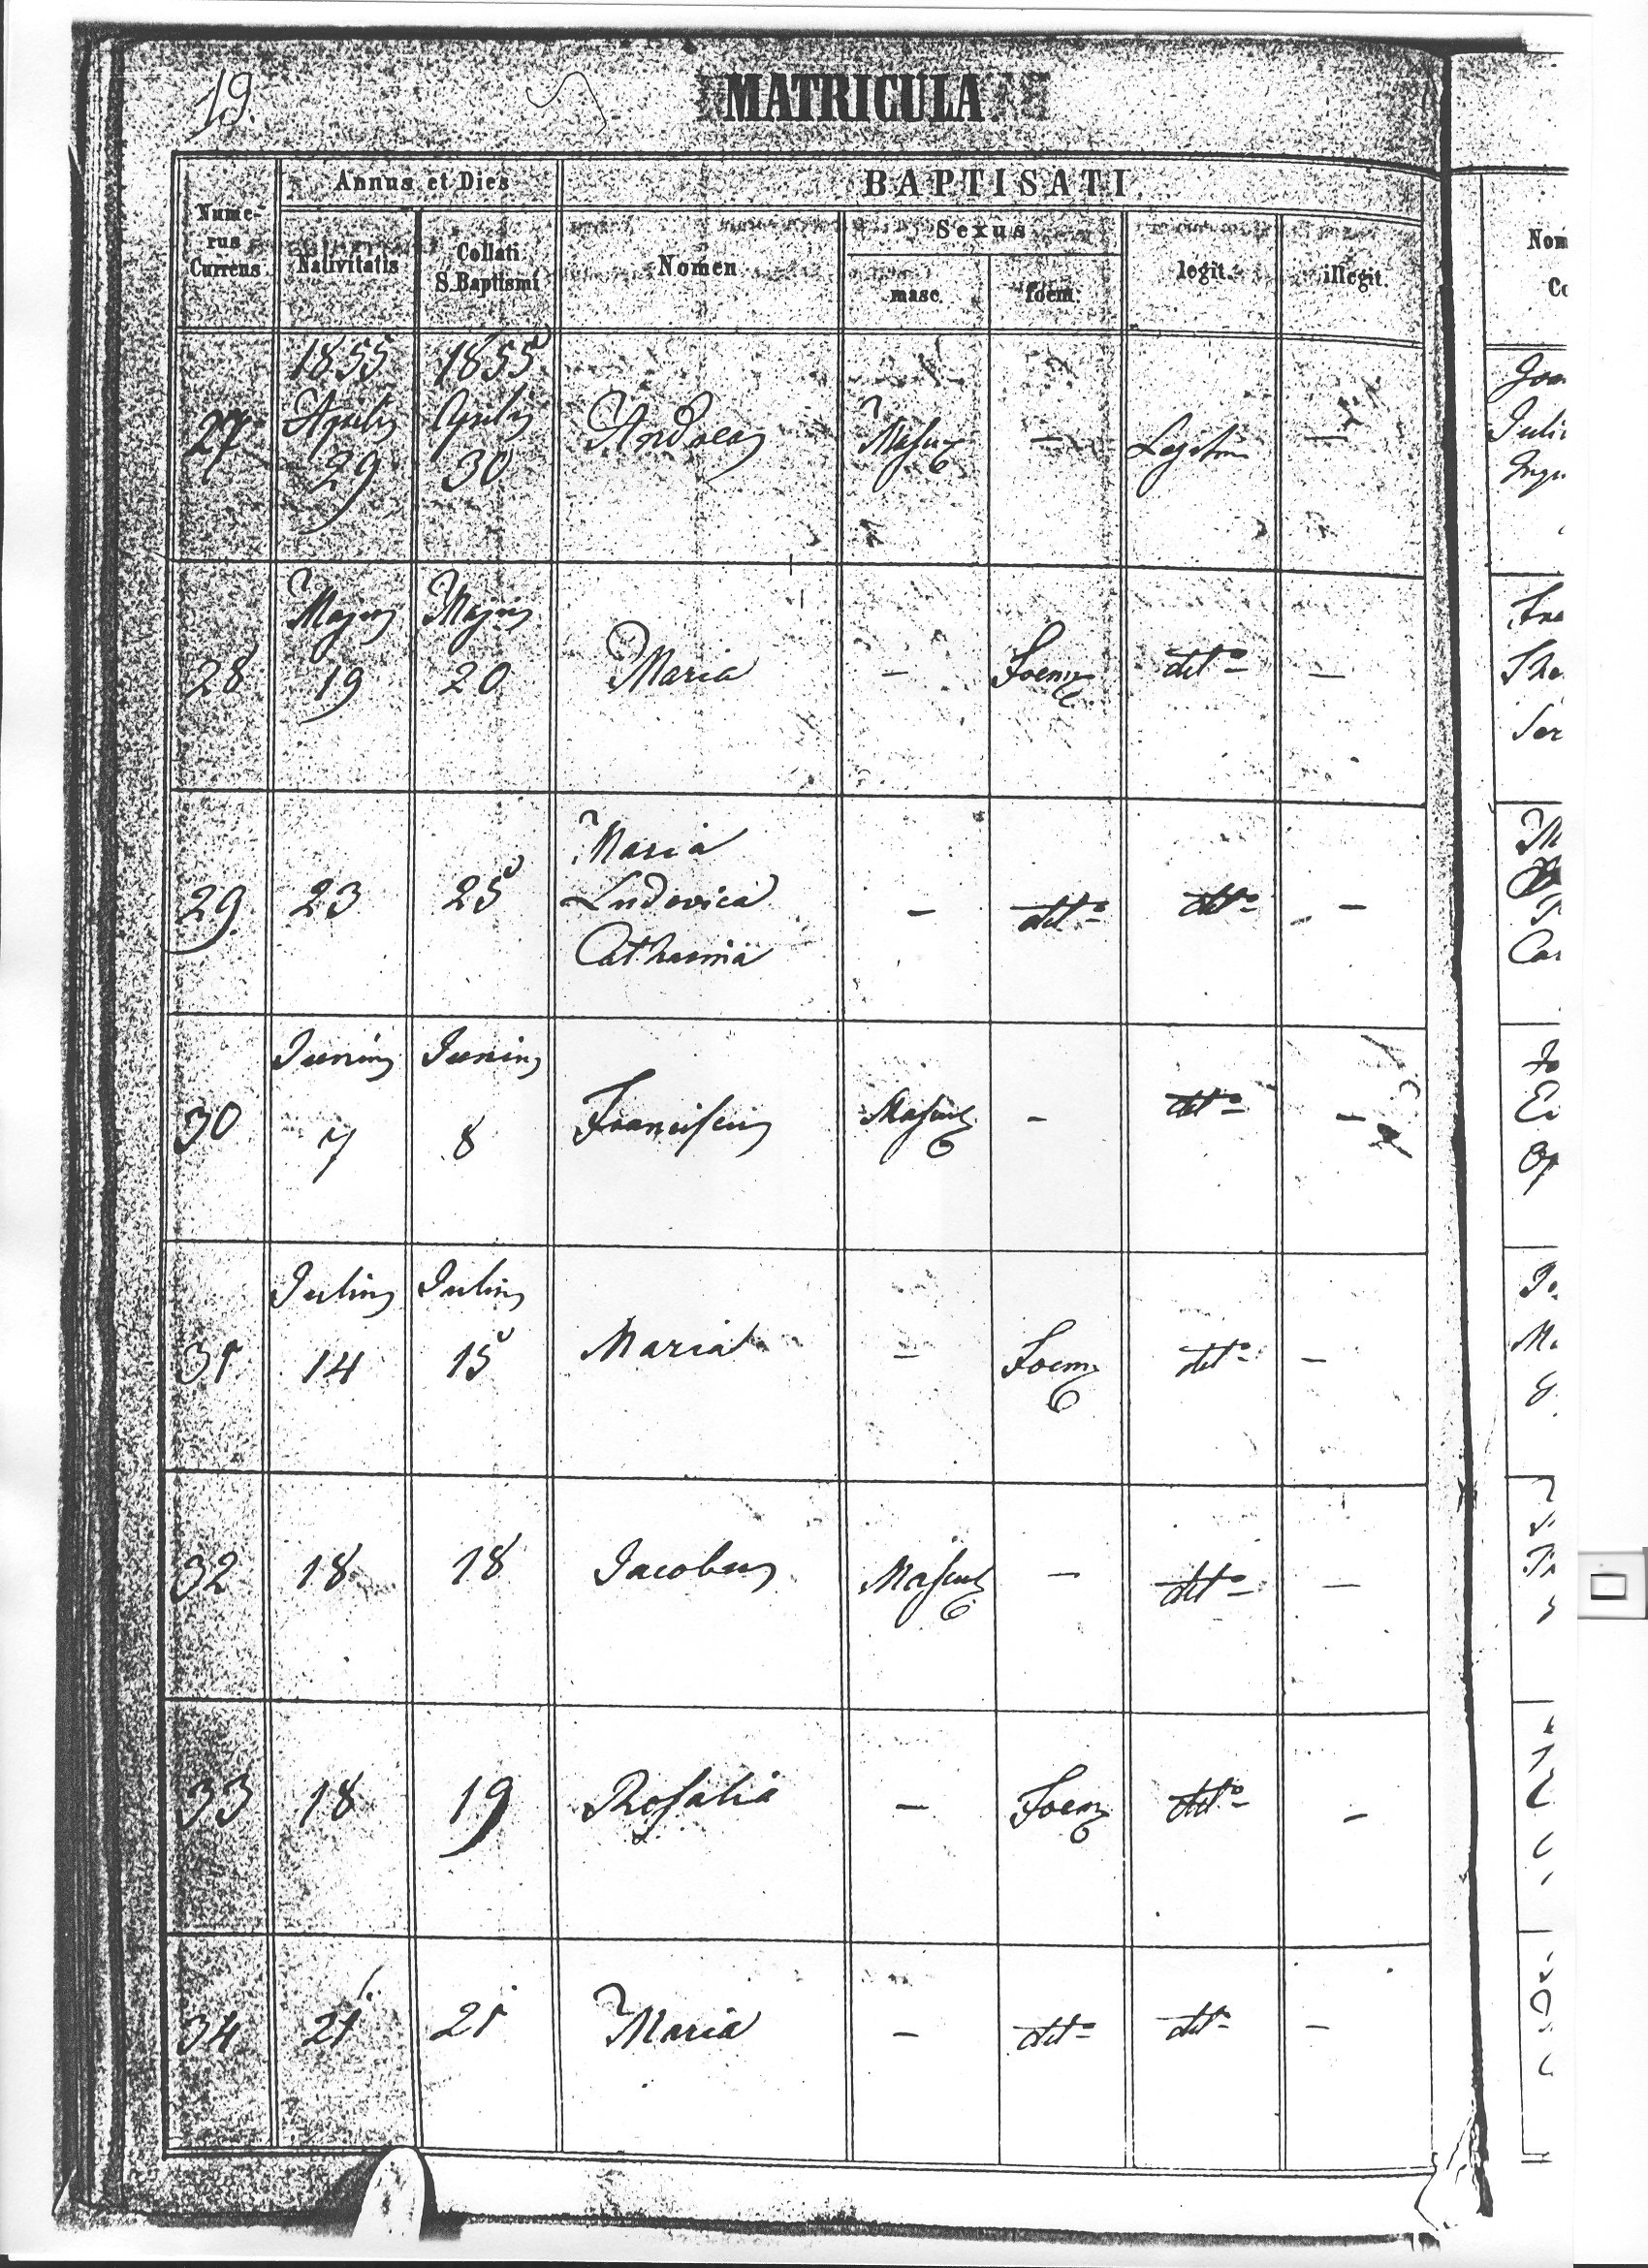 19.
MATRICULA
Nume-
rus
Currens
Annus et Dies
Nativitatis
Collati
S. Baptismi
BAPTISATI
Nomen
Sexus
masc.
foem.
legit.
illegit.
27
1855
Aprilis
29
1855
Aprilis
30
Andreas
Mascul
—
Legitim
—
28
Majus
19
Majus
20
Maria
—
Foem
detto
—
29.
23
25
Maria
Ludovica
Catharina
—
detto
detto
—
30
Junius
7
Junius
8
Franciscus
Mascul
—
detto
—
31
Julius
14
Julius
15
Maria
—
Foem
detto
—
32
18
18
Jacobus
Mascul
—
detto
—
33
18
19
Rosalia
—
Foem
detto
—
34
21
21
Maria
—
detto
detto
—